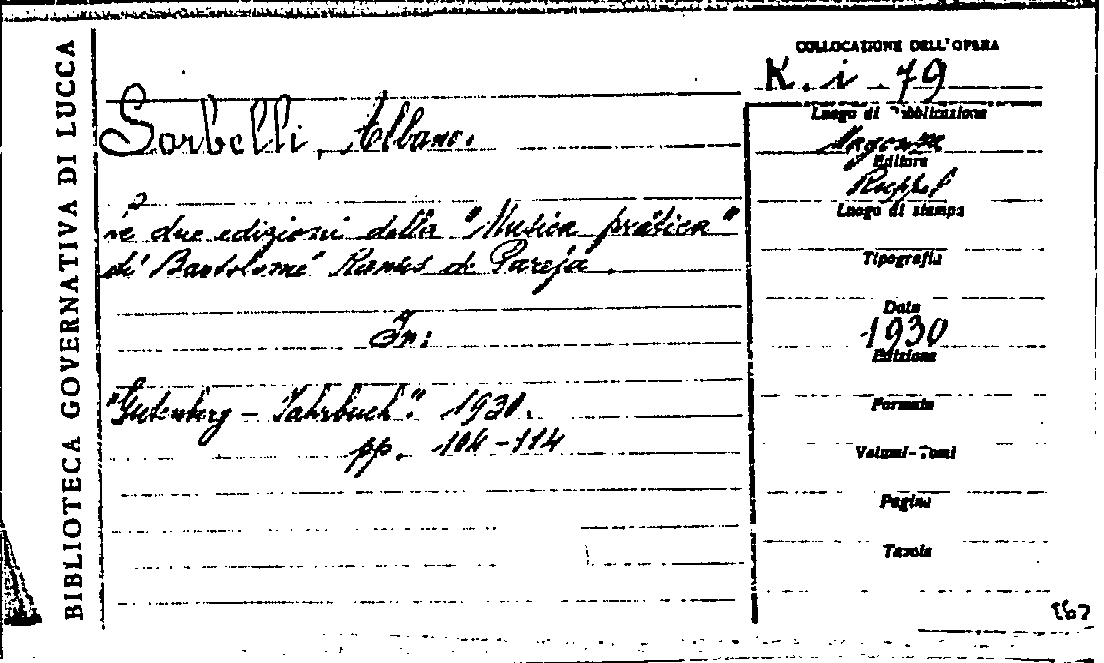 BIBLIOTECA GOVERNATIVA DI LUCCA
COLLOCAZIONE DELL'OPERA
K. i. 79
Sorbelli, Albano.
Le due edizioni della "Musica pratica"
di Bartolomé Ramis de Pareja.
In:
"Gutenberg - Jahrbuch". 1930.
pp. 104-114
Luogo di Pubblicazione
Magonza
Editore
Ruppel
Luogo di stampa
Tipografia
Data
1930
Edizione
Formato
Volumi-Tomi
Pagine
Tavole